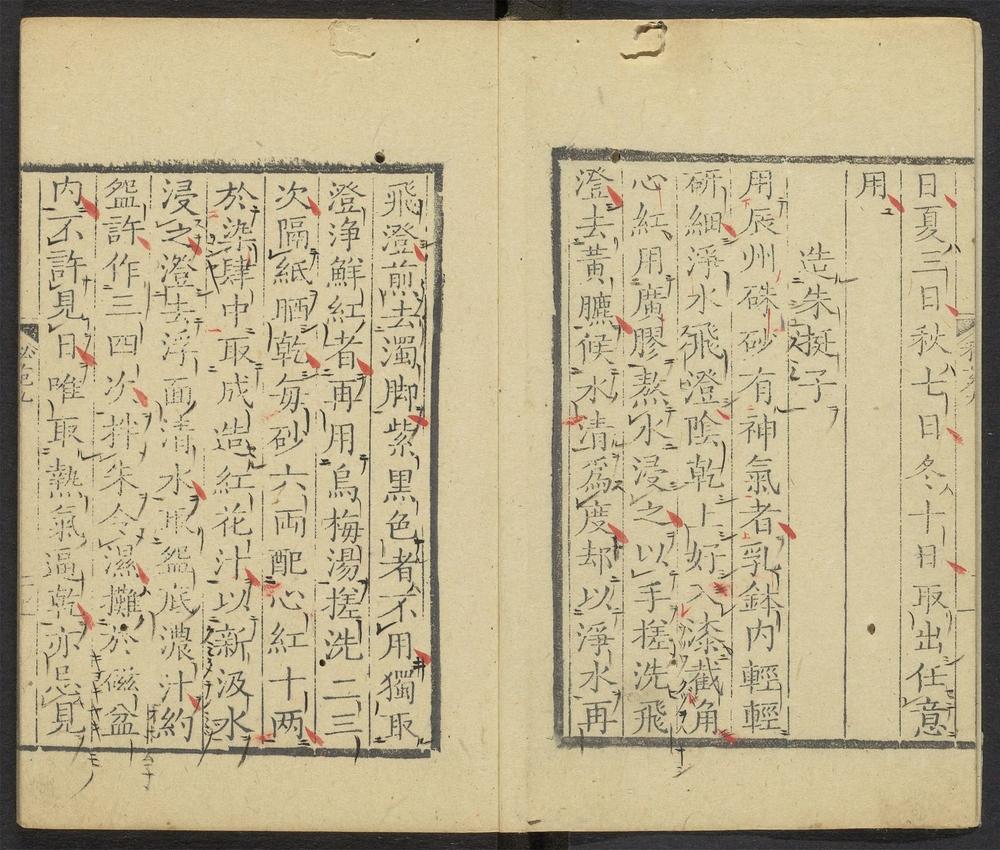 日夏三日秋七日冬十日取出任意
用
造朱挺子
用辰州硃砂有神氣者乳鉢内輕輕
研細淨水飛澄陰乾上好入漆截角
心紅用廣膠熬水浸之以手搓洗飛
澄去黃臕候水清爲度却以淨水再
飛澄煎去濁脚紫黒色者不用獨取
澄浄鮮紅者再用烏梅湯搓洗二三
次隔紙晒乾每砂六両配心紅十两
於染肆中取成造紅花汁以新汲水
浸之澄去浮面清水取盌底濃汁約
盌許作三四次拌朱令濕攤於磁盆
内不許見日唯取熱氣逼乾亦忌見